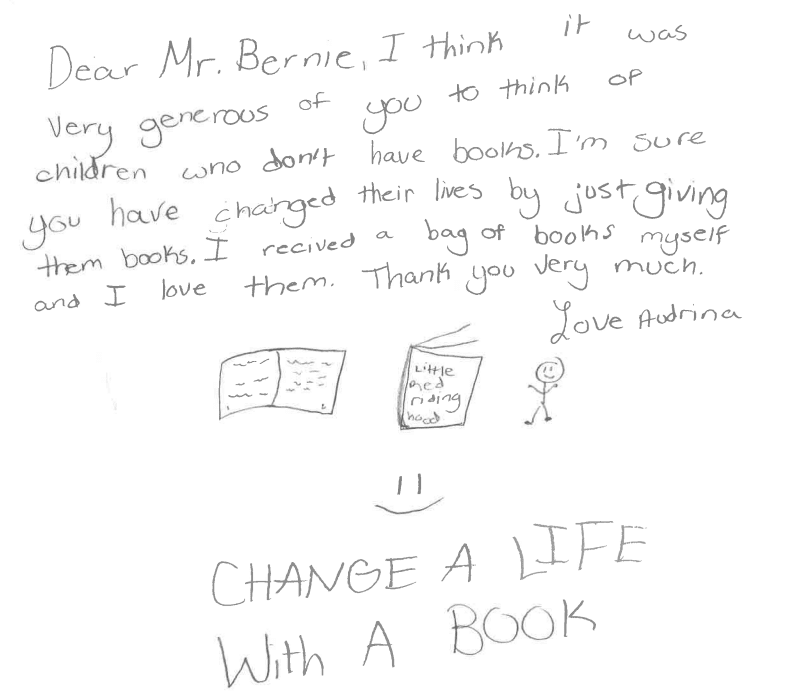 Dear Mr. Bernie, I think it was
very generous of you to think of
children who don't have books. I'm sure
you have changed their lives by just giving
them books. I recived a bag of books myself
and I love them. Thank you very much.
Love Audrina
Little
Red
riding
hood
CHANGE A LIFE
With A BOOK